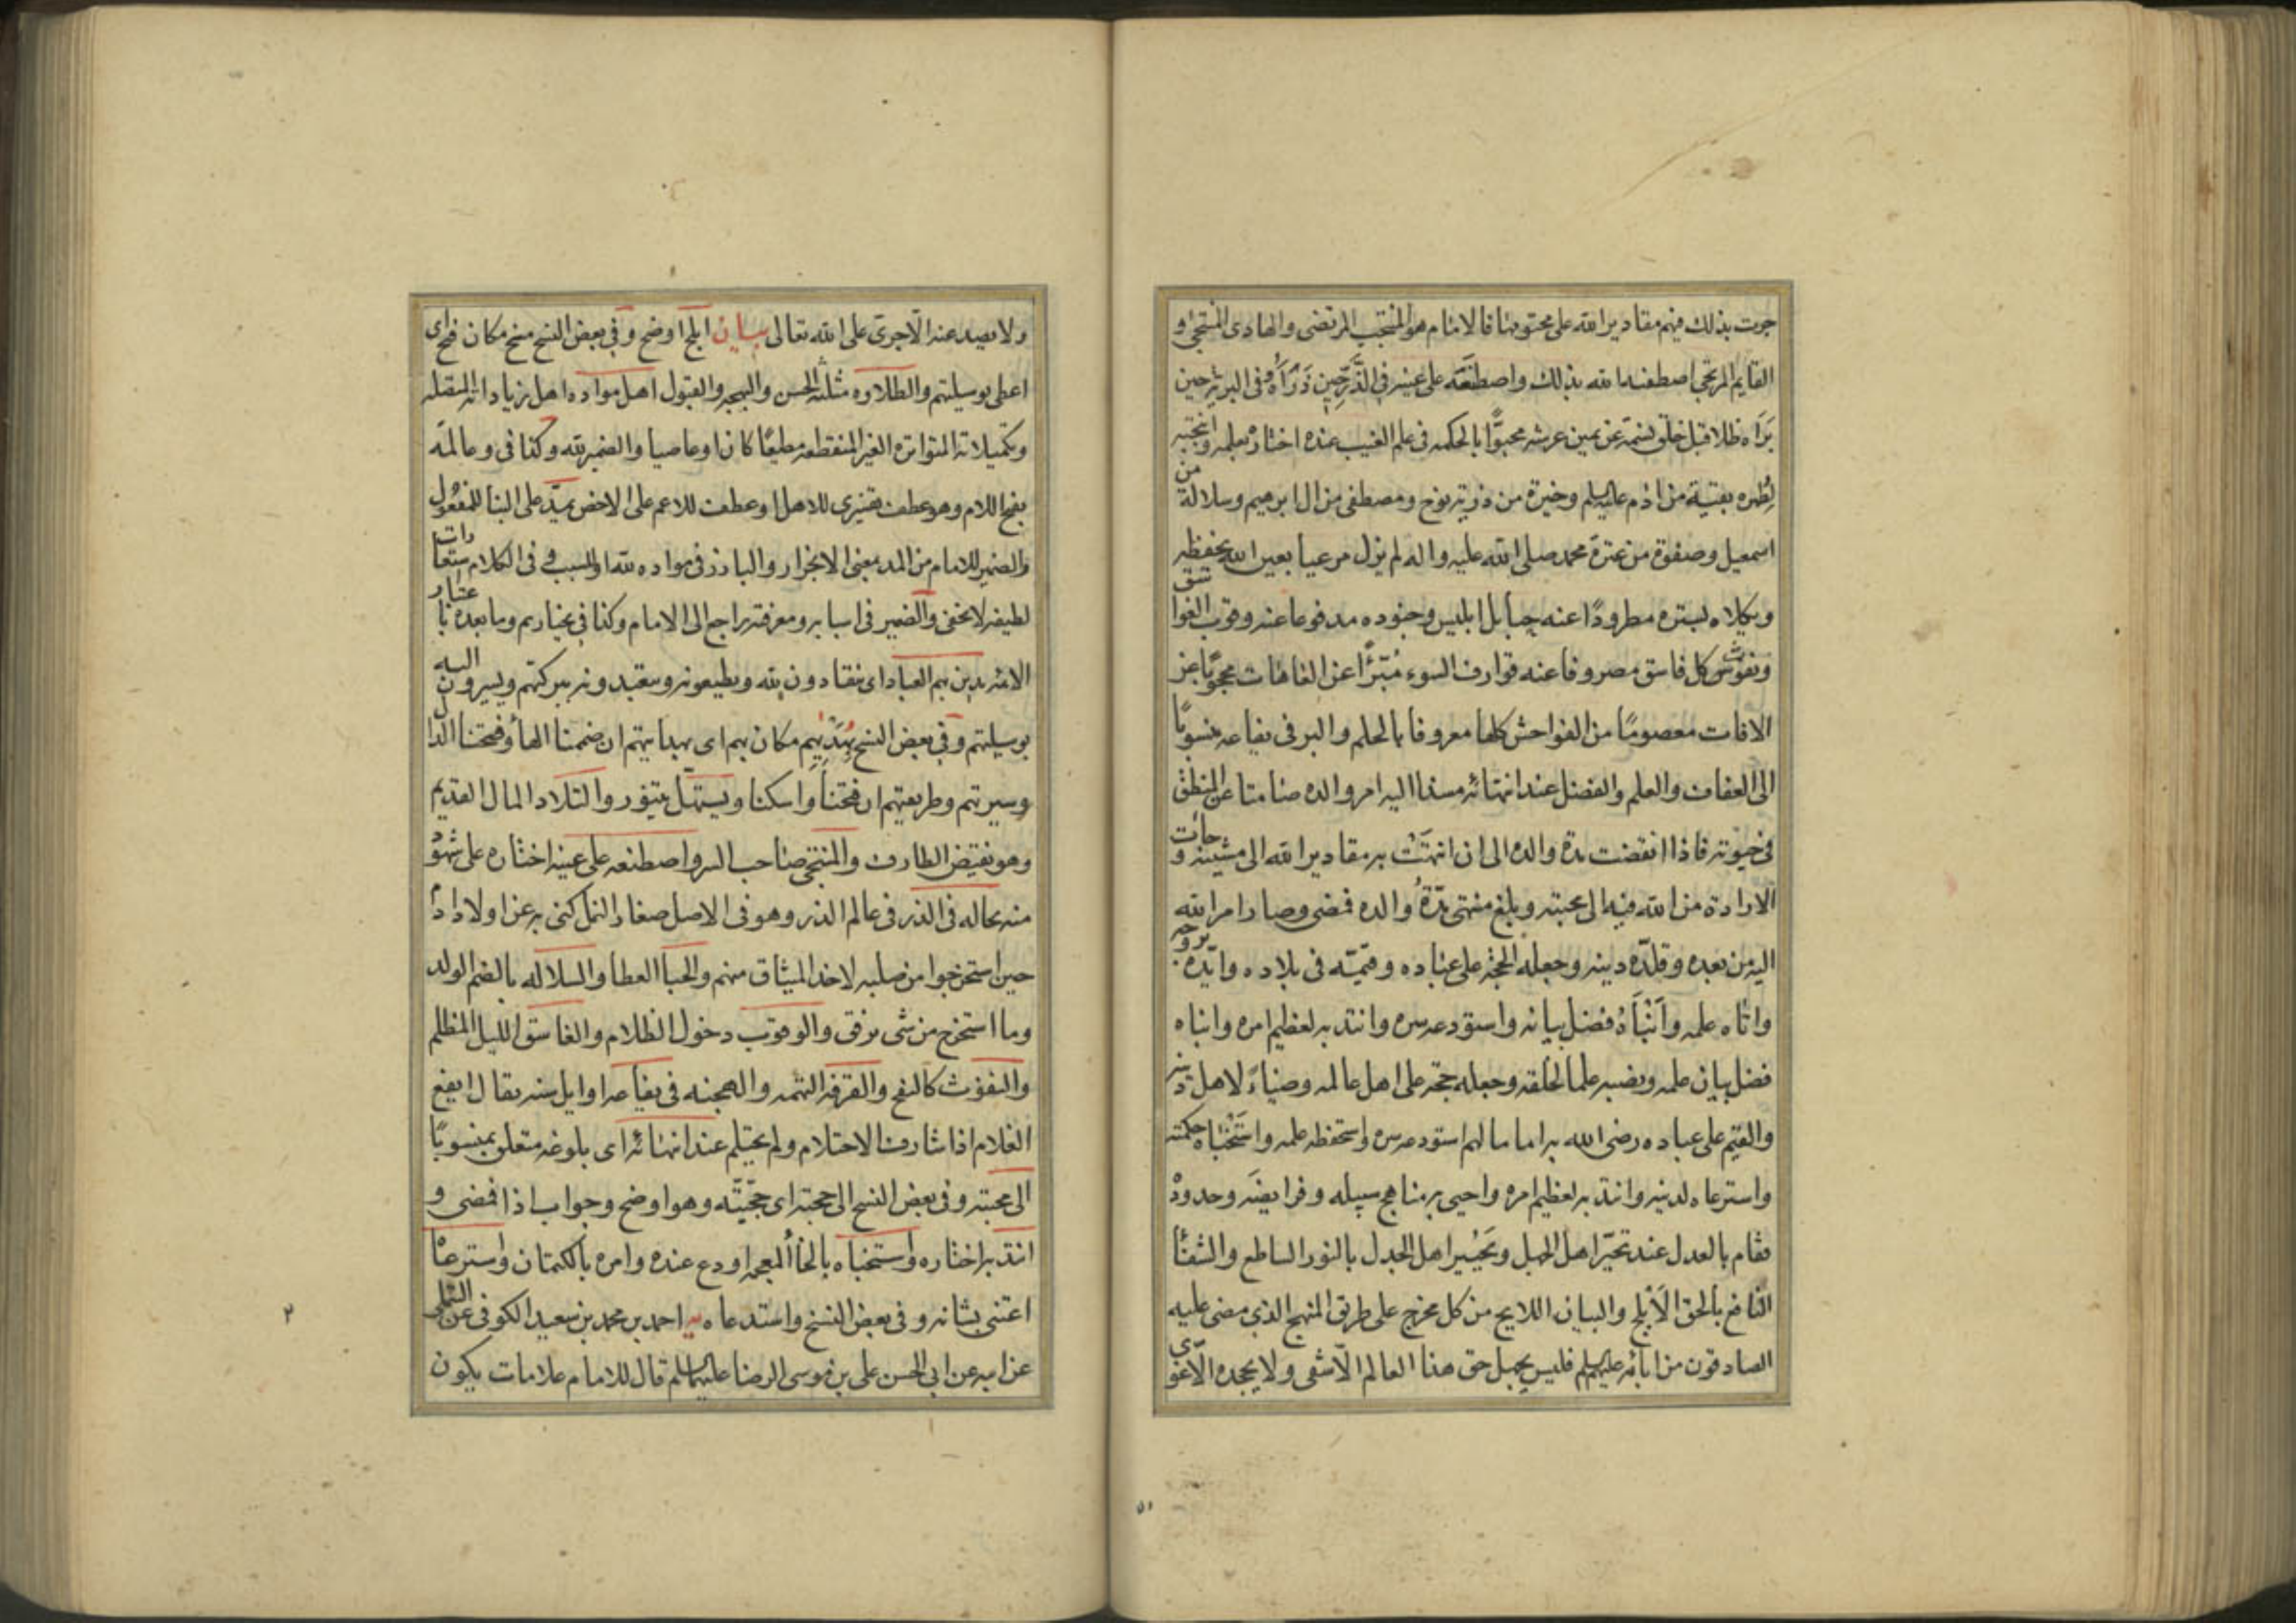 جرت بذلك فيهم مقادير الله على محتومها فالامام هو المنتجب المرتضى والهادى المنتجى و
القايم المرتجى اصطفيه الله بذلك واصطنعه على عينه فى الذر حين ذرأه وفى البرية حين
برأه ظلا قبل خلق نسمة عن يمين عرشه محبوا بالحكمة فى علم الغيب عنده اختاره بعلمه وانتجبه
لطهره بقية من ادم عليه السلم وخيرة من ذرية نوح ومصطفى من ال ابرهيم وسلالة من
اسمعيل وصفوة من عترة محمد صلى الله عليه واله لم يزل مرعيا بعين الله يحفظه
ويكلاه بستره مطرودا عنه حبايل ابليس وجنوده مدفوعا عنه وقوب الغواسق
ونفوث كل فاسق مصروفا عنه قوارف السوء مبرّأ عن العاهات محجوبا عن
الافات معصوما من الفواحش كلها معروفا بالحلم والبر فى يفاعه منسوبا
الى العفاف والعلم والفضل عند انتهائه مسندا اليه امر والده صامتا عن المنطق
فى حيوته فاذا انقضت مدة والده الى ان انتهت به مقادير الله الى مشيته وجائت
الارادة من الله فيه الى محبته وبلغ منتهى مدة والده فمضى وصار امر الله
اليه من بعده وقلّده دينه وجعله الحجة على عباده وقيمه فى بلاده وايّده بروحه
واتاه علمه وانبأه فضل بيانه واستودعه سره وانتدبه لعظيم امره وانباه
فضل بيان علمه ونصبه علما لخلقه وجعله حجة على اهل عالمه وضياء لاهل دينه
والقيم على عباده رضى الله به اماما لهم استودعه سره واستحفظه علمه واستخباه حكمته
واسترعاه لدينه وانتدبه لعظيم امره واحيى به مناهج سبيله وفرايضه وحدوده
فقام بالعدل عند تحيّر اهل الجهل وتحيير اهل الجدل بالنور الساطع والشفأ
النافع بالحق الابلج والبيان اللايح من كل مخرج على طريق المنهج الذي مضى عليه
الصادقون من ابائه عليهم السلم فليس يجهل حق هذا العالم الّا شقى ولا يجحده الّا غوى
ولا يصد عنه الّا جرىّ على الله تعالى بيان ابلج اوضح وفى بعض النسخ منح مكان فتح اى
اعطى بوسيلتهم والطلاوه مثلثه الحسن والبهجه والقبول اهل مواده اهل زياداته المتصله
وتكميلاته المتواتره الغير المنقطعه مطيعا كان او عاصيا والضمير لله وكذا فى وعالمه
بفتح اللام وهو عطف تفسيرى للاهل او عطف للاعم على الاخص يمدّ على البنأ للمفعول
والضمير للامام من المد بمعنى الانجرار والبارز فى مواده لله او للسبب وفى الكلام استعارات
لطيفه لا تخفى والضمير فى اسبابه ومعرفته راجع الى الامام وكذا فى بخياريهم وما بعده باعتبار
الائمه يدين بهم العباد اى ينقادون لله ويطيعونه ويتعبدونه ببركتهم ويسيرون اليه
بوسيلتهم وفى بعض النسخ بهديهم مكان بهم اى بهدايتهم ان ضممنا الهأ وفتحنا الدال
وسيرتهم وطريقتهم ان فتحنا واسكنا ويستهلّ يتنور والتلاد المال القديم
وهو نقيض الطارف والمنتجى صاحب السر واصطنعه على عينه اختاره على شهود
منه بحاله فى الذر فى عالم الذر وهو فى الاصل صغار النمل كنى به عن اولاد ادم
حين استخرجوا من صلبه لاخذ الميثاق منهم والحبأ العطأ والسلاله بالضم الولد
وما استخرج من شى برفق والوقوب دخول الظلام والغاسق الليل المظلم
والنفوث كالنفخ والقرفه التهمه والهجنه فى يفاعه اوايل سنه يقال ايفع
الغلام اذا شارف الاحتلام ولم يحتلم عند انتهائه اى بلوغه متعلق بمنسوبا
الى محبته وفى بعض النسخ الى حجته اى حجّيته وهو اوضح وجواب اذا فمضى و
انتدبه اختاره واستخباه بالخأ المعجمه اودع عنده وامره بالكتمان واسترعاه
اعتنى بشانه وفى بعض النسخ واستدعاه يه احمد بن محمد بن سعيد الكوفى عن التيملى
عن ابيه عن ابى الحسن على بن موسى الرضا عليهما السلم قال للامام علامات يكون
٢
٥١